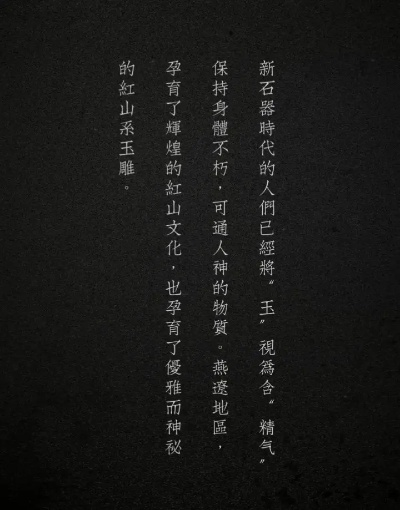 新石器時代的人們已經將“玉”視爲含“精气”
保持身體不朽，可通人神的物質。燕遼地區，
孕育了輝煌的紅山文化，也孕育了優雅而神祕
的紅山系玉雕。